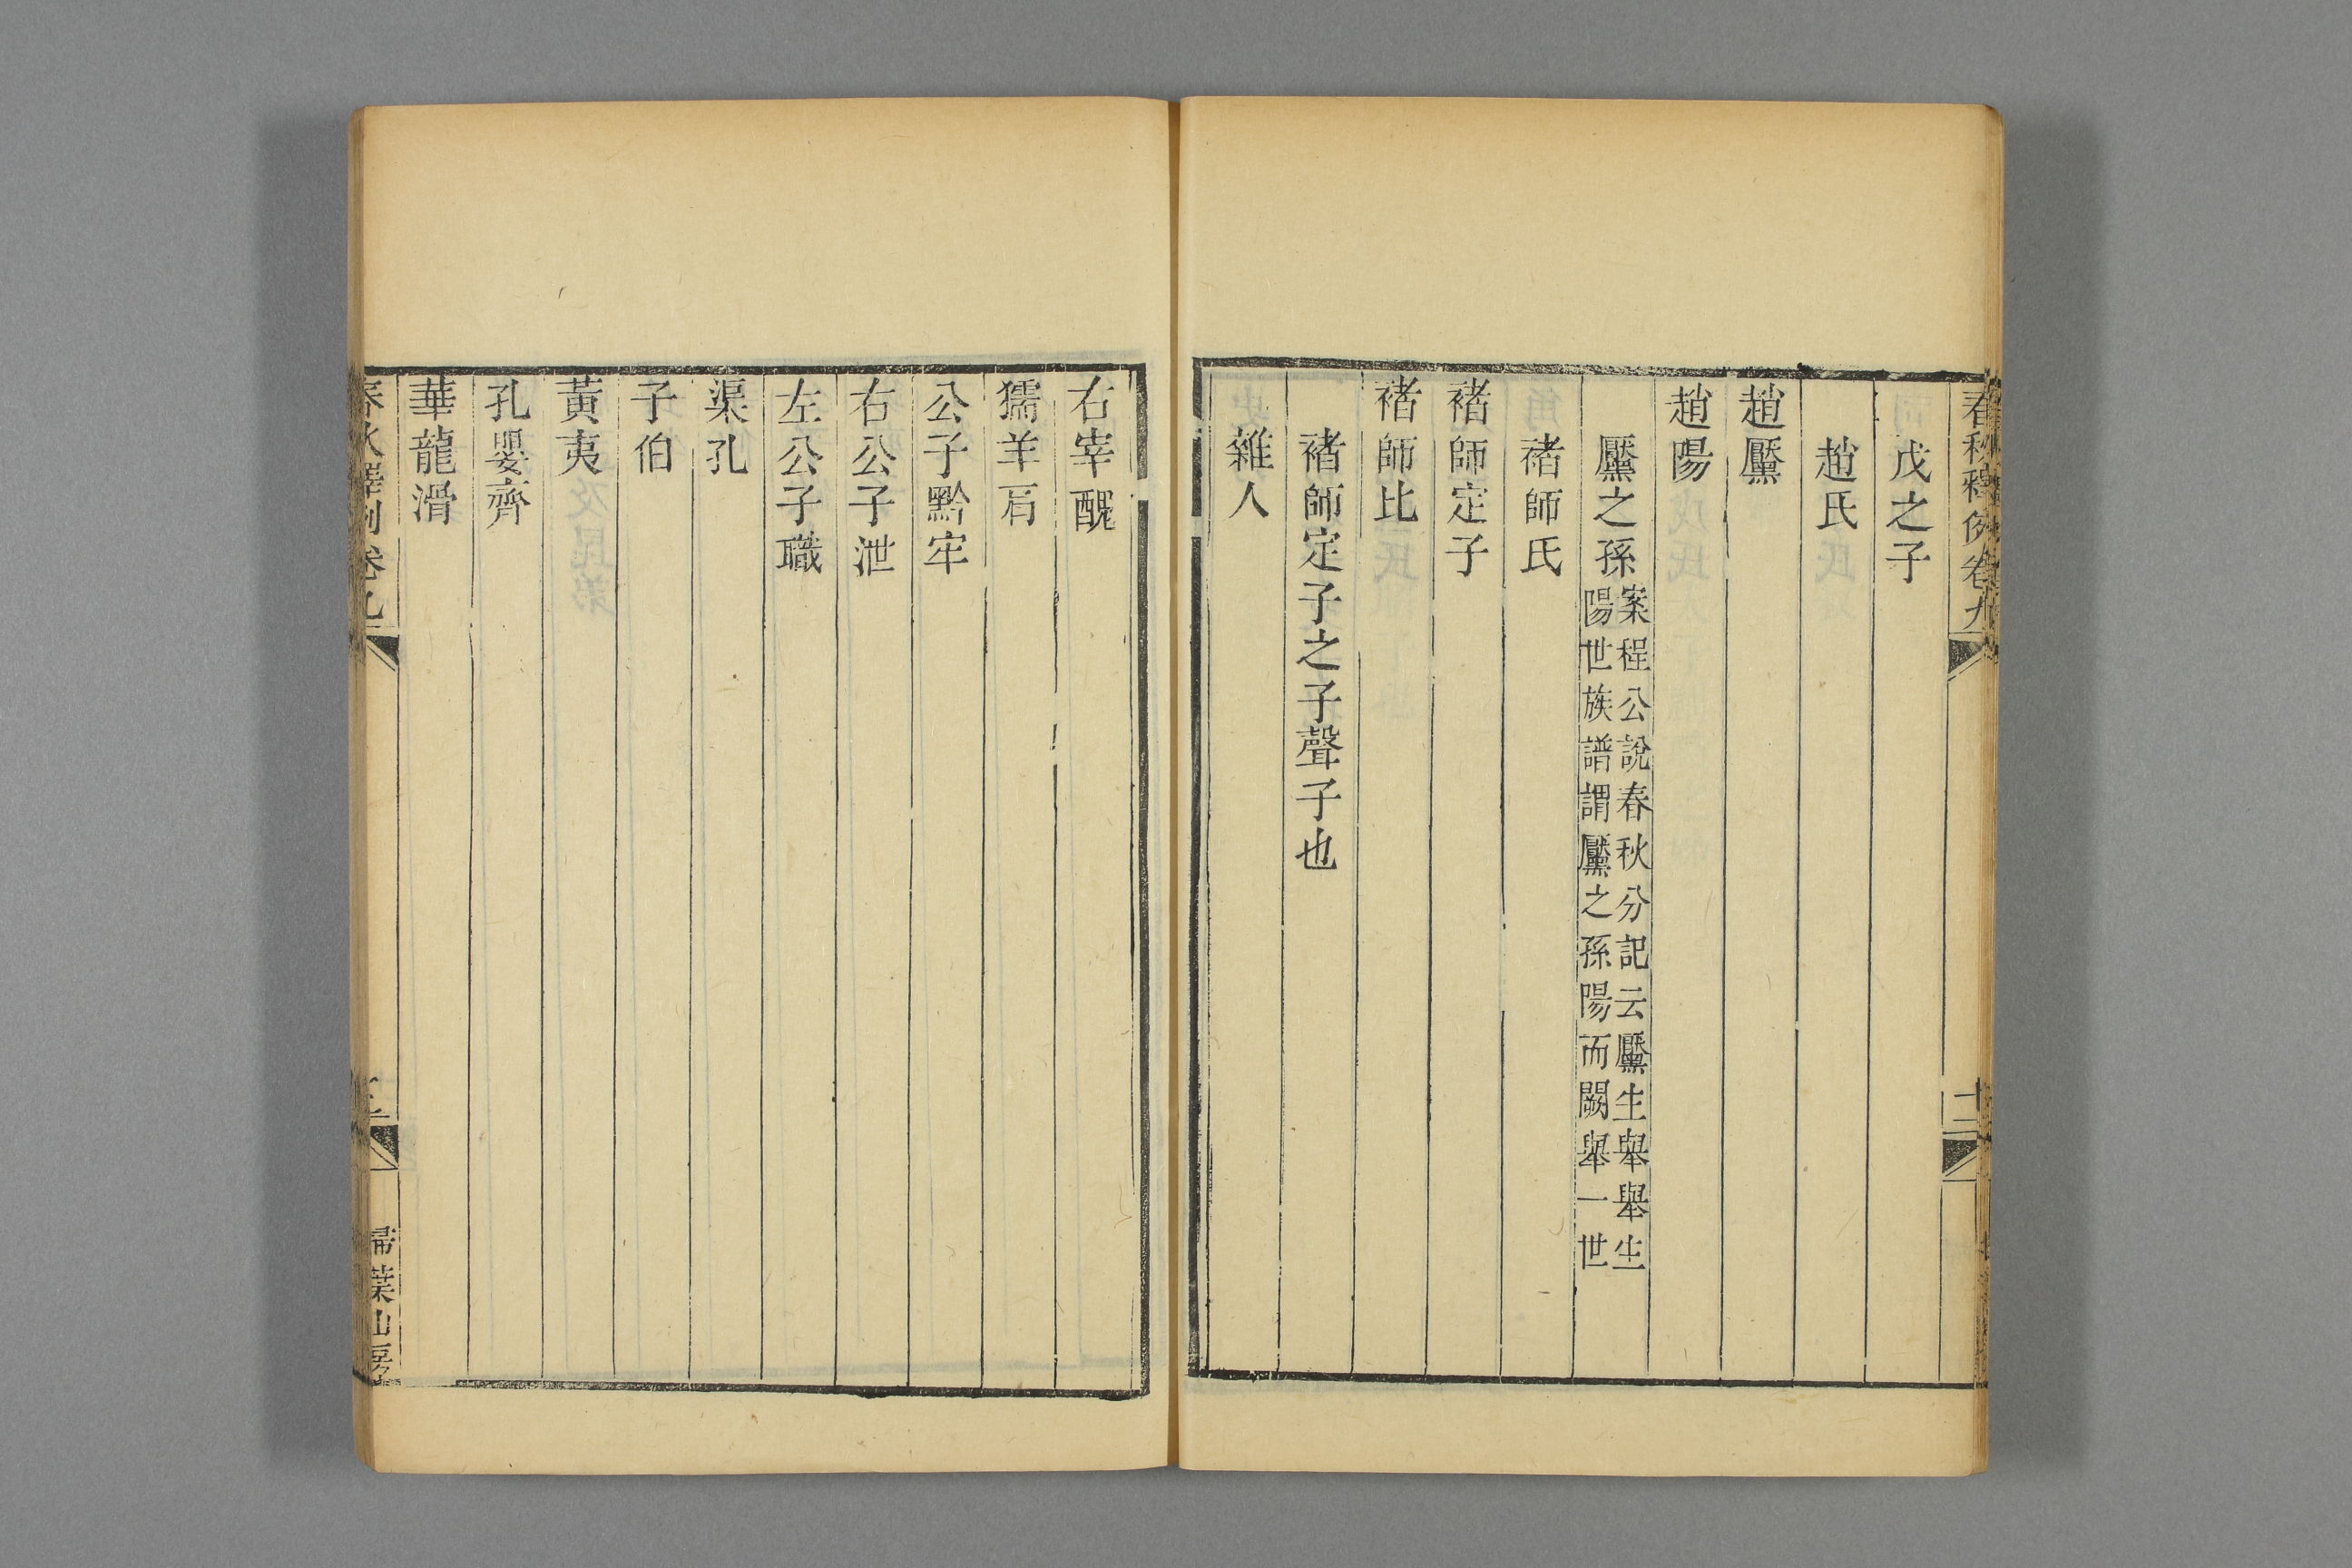 春秋釋例卷九
十二
戊之子
趙氏
趙黶
趙陽
黶之孫案程公說春秋分記云黶生舉舉生
陽世族譜謂黶之孫陽而闕舉一世
褚師氏
褚師定子
褚師比
褚師定子之子聲子也
雜人
右宰醜
獳羊肩
公子黔牟
右公子泄
左公子職
渠孔
子伯
黃夷
孔嬰齊
華龍滑
春秋釋例卷九
掃葉山房